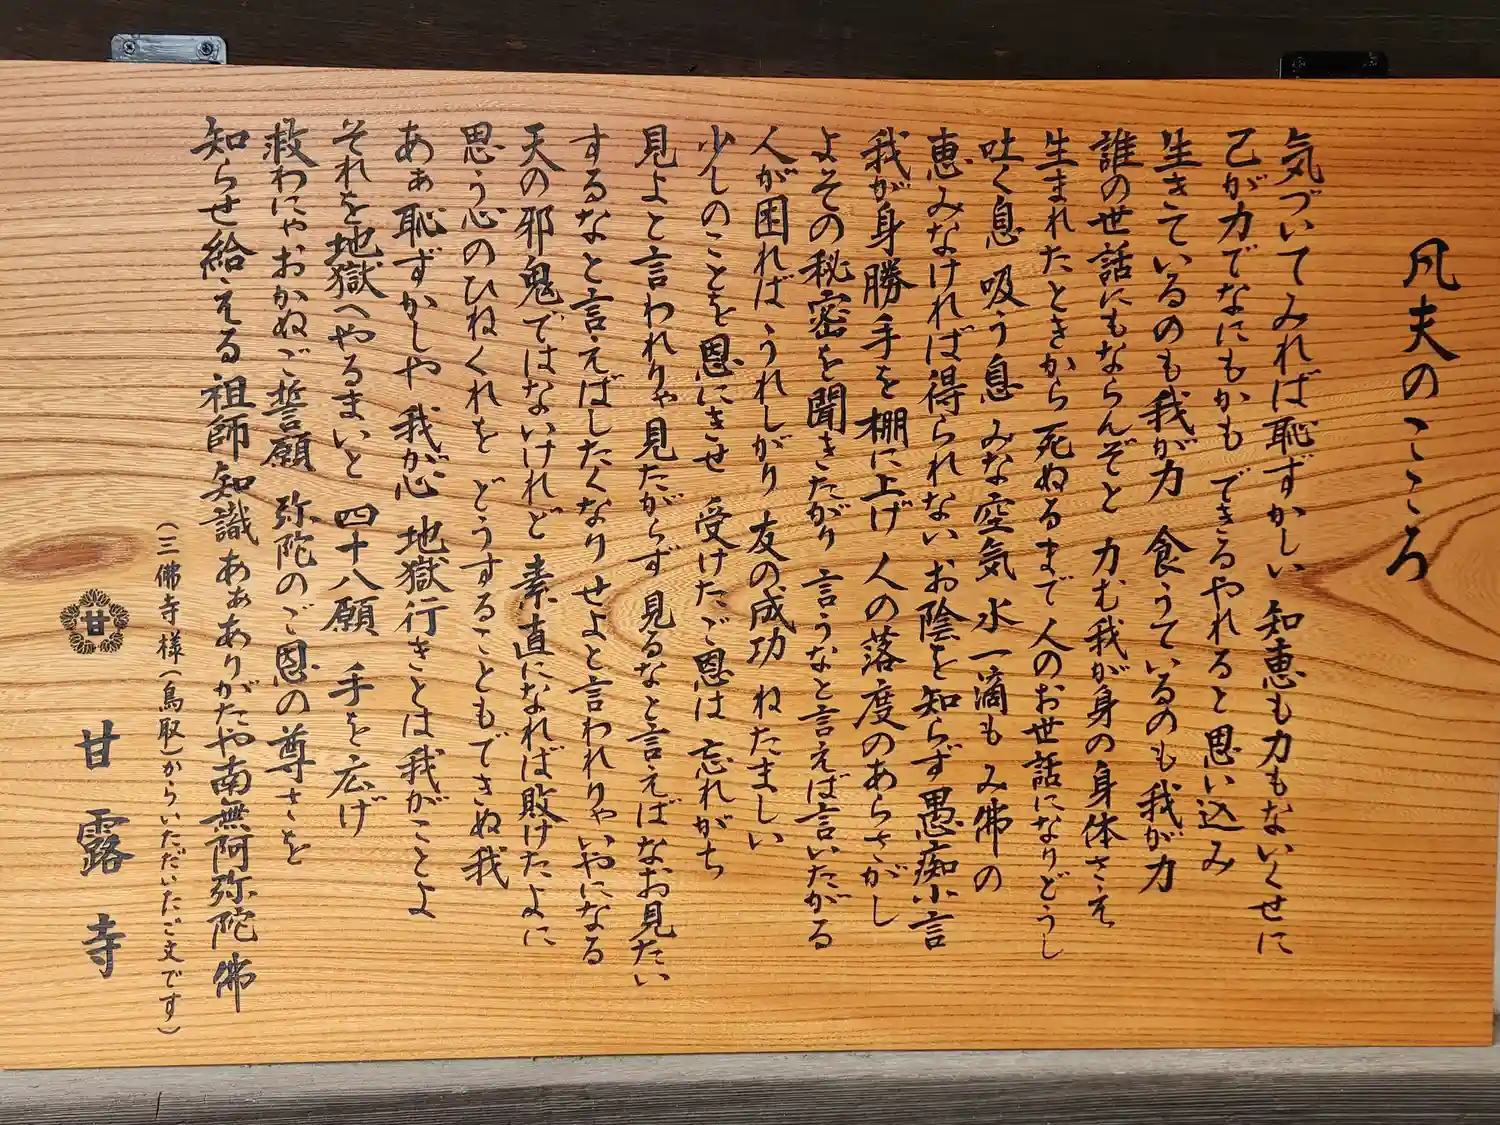 凡夫のこころ
気づいてみれば恥ずかしい 知恵も力もないくせに
己が力でなにもかも できるやれると思い込み
生きているのも我が力 食うているのも我が力
誰の世話にもならんぞと 力む我が身の身体さえ
生まれたときから死ぬるまで人のお世話になりどうし
吐く息 吸う息 みな空気 水一滴も み佛の
恵みなければ得られない お陰を知らず愚痴小言
我が身勝手を棚に上げ 人の落度のあらさがし
よその秘密を聞きたがり 言うなと言えば言いたがる
人が困れば うれしがり 友の成功 ねたましい
少しのことを恩にきせ 受けたご恩は 忘れがち
見よと言われりゃ見たがらず 見るなと言えばなお見たい
するなと言えばしたくなり せよと言われりゃいやになる
天の邪鬼ではないけれど 素直になれば敗けたよに
思う心のひねくれを どうすることもできぬ我
あぁ恥ずかしや 我が心 地獄行きとは我がことよ
それを地獄へやるまいと 四十八願 手を広げ
救わにゃおかぬご誓願 弥陀のご恩の尊さを
知らせ給える祖師知識 あぁありがたや南無阿弥陀佛
(三佛寺様(鳥取)からいただいたご文です)
甘
甘露寺